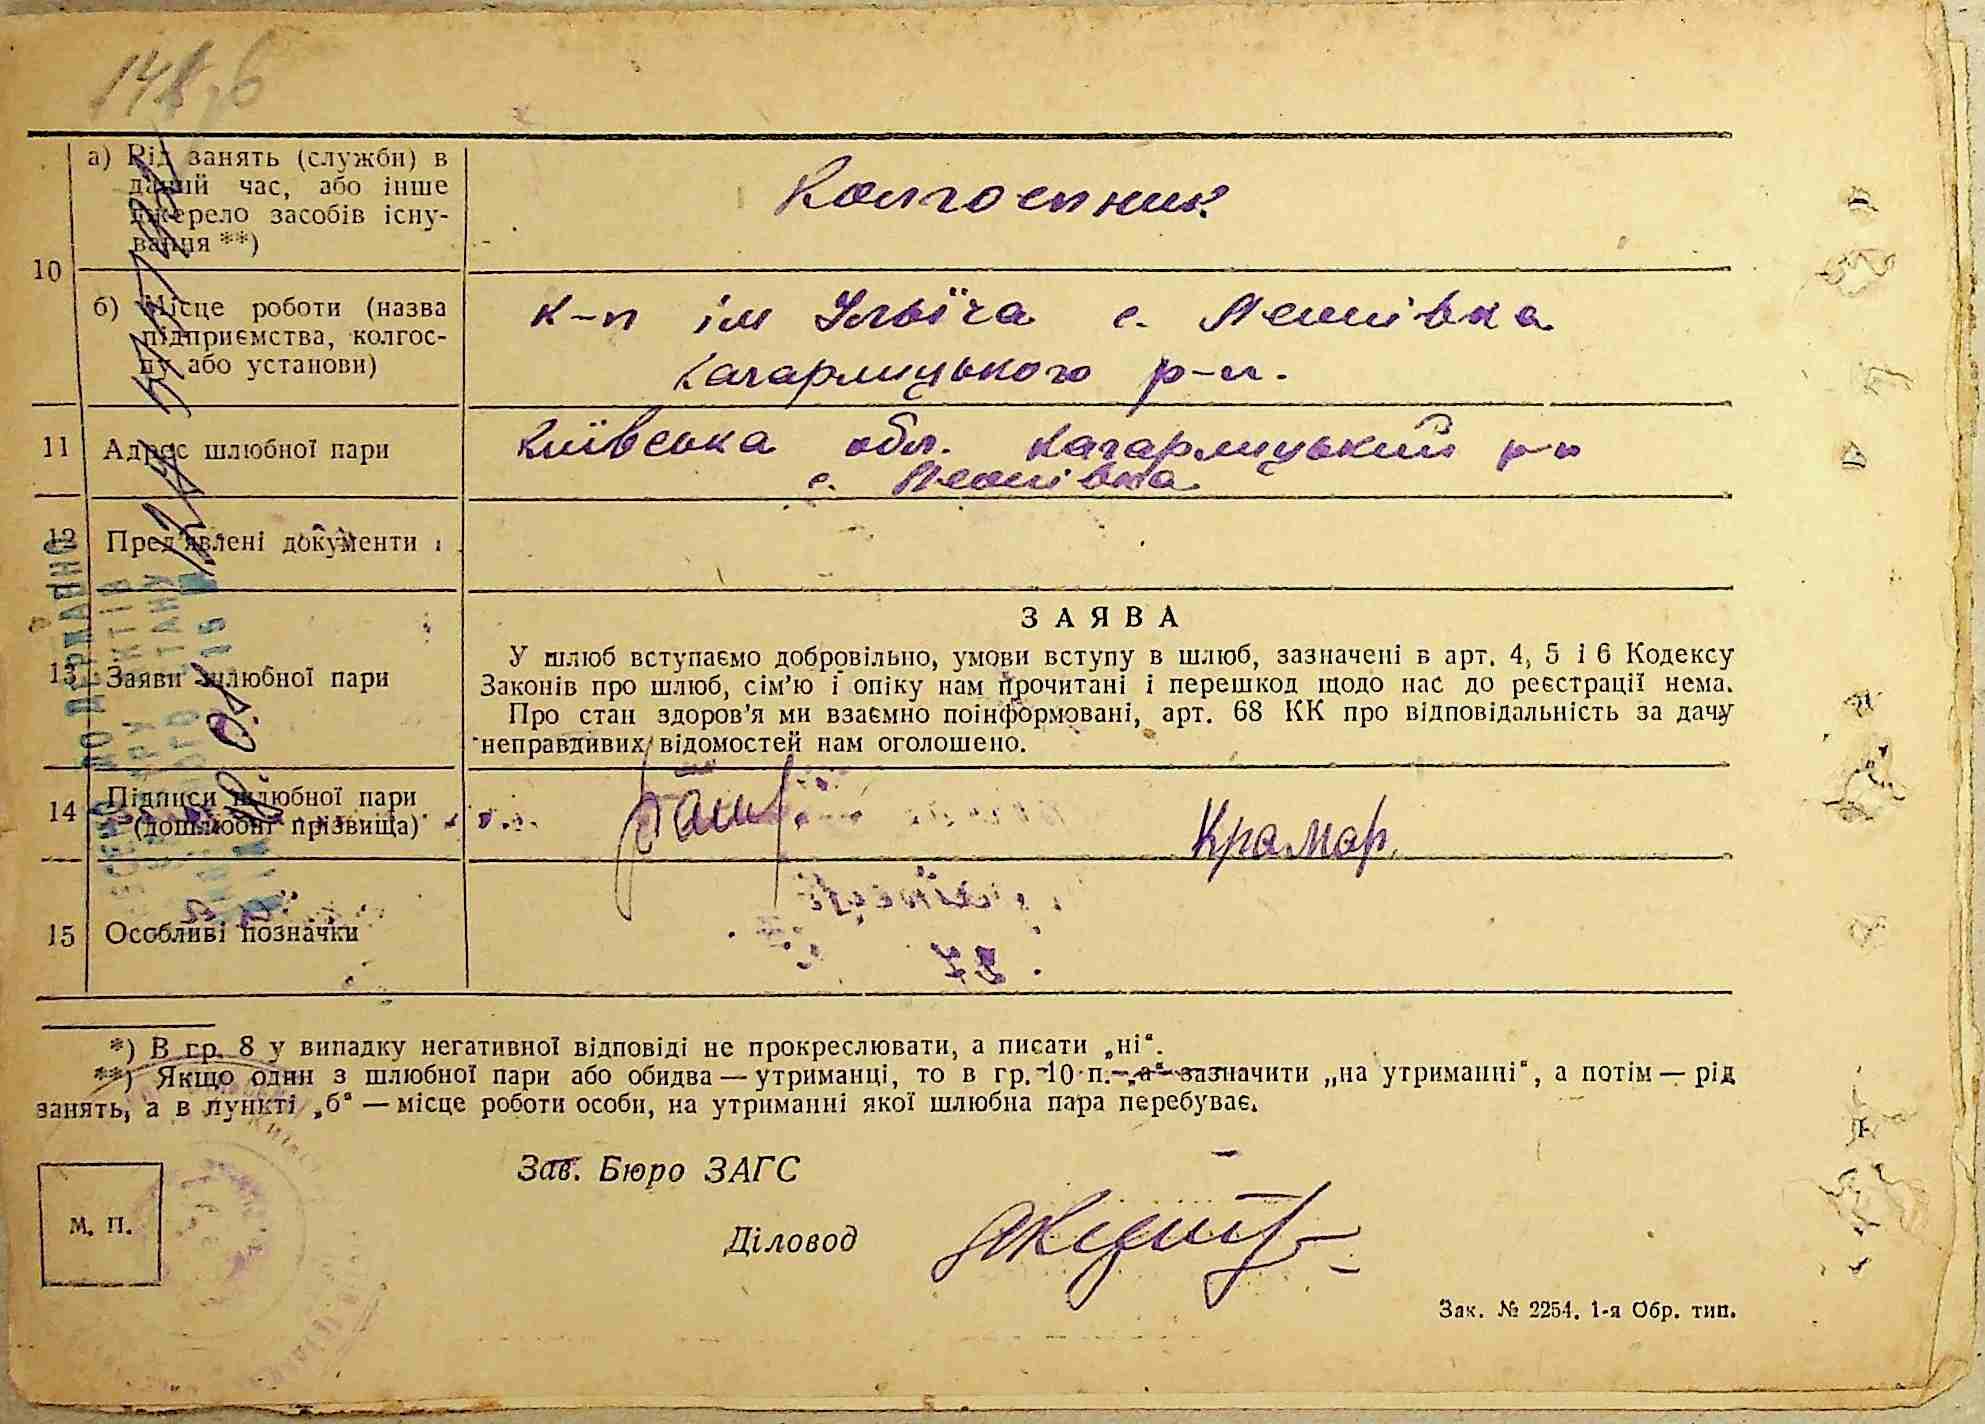 10
а) Рід занять (служби) в
даний час, або інше
джерело засобів існу-
вання **)
Колгоспник
б) Місце роботи (назва
підприємства, колгос-
пу або установи)
к-п ім Ульїча с. Леонівка
Кагарлицького р-н.
11 Адрес шлюбної пари
Київська обл. Кагарлицький р-н
с. Леонівка
12 Пред'явлені документи
13 Заяви шлюбної пари
ЗАЯВА
У шлюб вступаємо добровільно, умови вступу в шлюб, зазначені в арт. 4, 5 і 6 Кодексу
Законів про шлюб, сім'ю і опіку нам прочитані і перешкод щодо нас до реєстрації нема.
Про стан здоров'я ми взаємно поінформовані, арт. 68 КК про відповідальність за дачу
неправдивих відомостей нам оголошено.
14 Підписи шлюбної пари
(дошлюбні прізвища)
Крамар
15 Особливі позначки
*) В гр. 8 у випадку негативної відповіді не прокреслювати, а писати „ні“.
**) Якщо один з шлюбної пари або обидва — утриманці, то в гр. 10 п. „а“ зазначити „на утриманні“, а потім — рід
занять, а в пункті „б“ — місце роботи особи, на утриманні якої шлюбна пара перебуває.
Зав. Бюро ЗАГС
М. П.
Діловод
Зак. № 2254. 1-я Обр. тип.